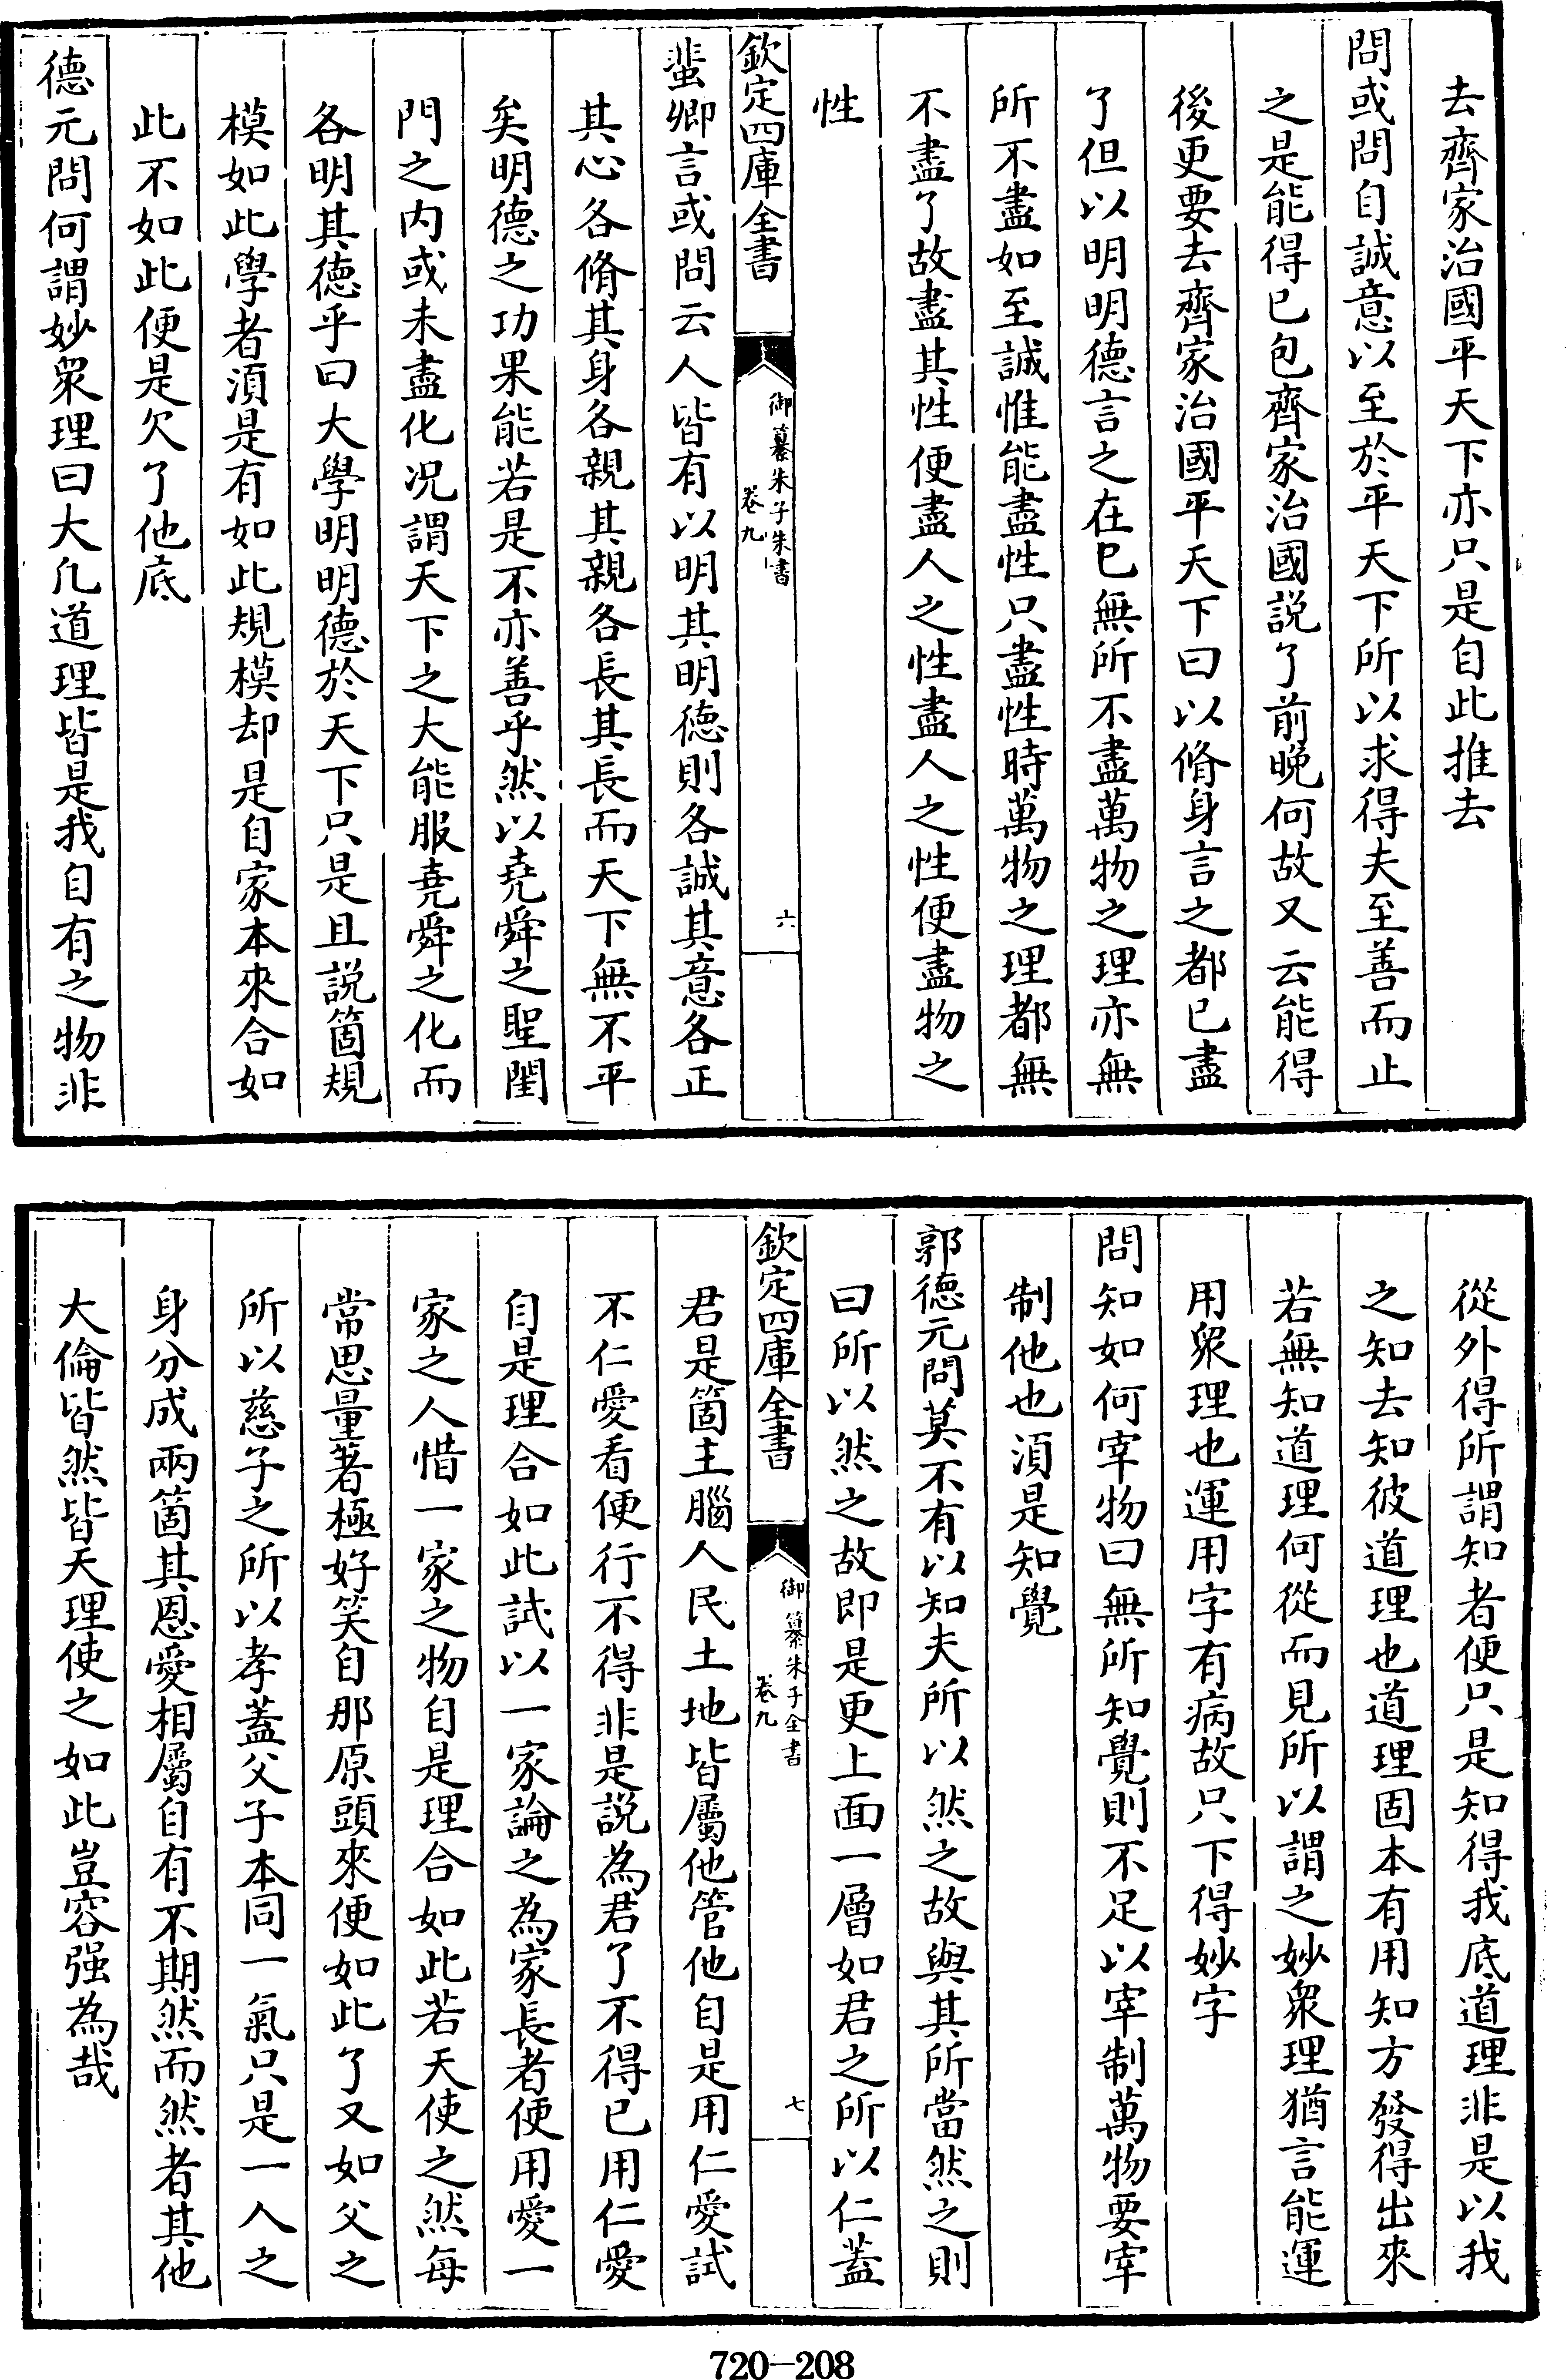 去齊家治國平天下亦只是自此推去
問或問自誠意以至於平天下所以求得夫至善而止
之是能得已包齊家治國説了前晚何故又云能得
後更要去齊家治國平天下曰以脩身言之都已盡
了但以明明德言之在已無所不盡萬物之理亦無
所不盡如至誠惟能盡性只盡性時萬物之理都無
不盡了故盡其性便盡人之性盡人之性便盡物之
性
欽定四庫全書
御纂朱子朱書
卷九
六
蜚卿言或問云人皆有以明其明德則各誠其意各正
其心各脩其身各親其親各長其長而天下無不平
矣明德之功果能若是不亦善乎然以堯舜之聖閨
門之内或未盡化况謂天下之大能服堯舜之化而
各明其德乎曰大學明明德於天下只是且説箇規
模如此學者湏是有如此規模却是自家本來合如
此不如此便是欠了他底
德元問何謂妙衆理曰大凡道理皆是我自有之物非
從外得所謂知者便只是知得我底道理非是以我
之知去知彼道理也道理固本有用知方發得出來
若無知道理何從而見所以謂之妙衆理猶言能運
用衆理也運用字有病故只下得妙字
問知如何宰物曰無所知覺則不足以宰制萬物要宰
制他也湏是知覺
郭德元問莫不有以知夫所以然之故與其所當然之則
曰所以然之故即是更上面一層如君之所以仁蓋
欽定四庫全書
御纂朱子全書
卷九
七
君是箇主腦人民土地皆屬他管他自是用仁愛試
不仁愛看便行不得非是説為君了不得已用仁愛
自是理合如此試以一家論之為家長者便用愛一
家之人惜一家之物自是理合如此若天使之然每
常思量著極好笑自那原頭來便如此了又如父之
所以慈子之所以孝蓋父子本同一氣只是一人之
身分成兩箇其恩愛相屬自有不期然而然者其他
大倫皆然皆天理使之如此豈容强為哉
720-208